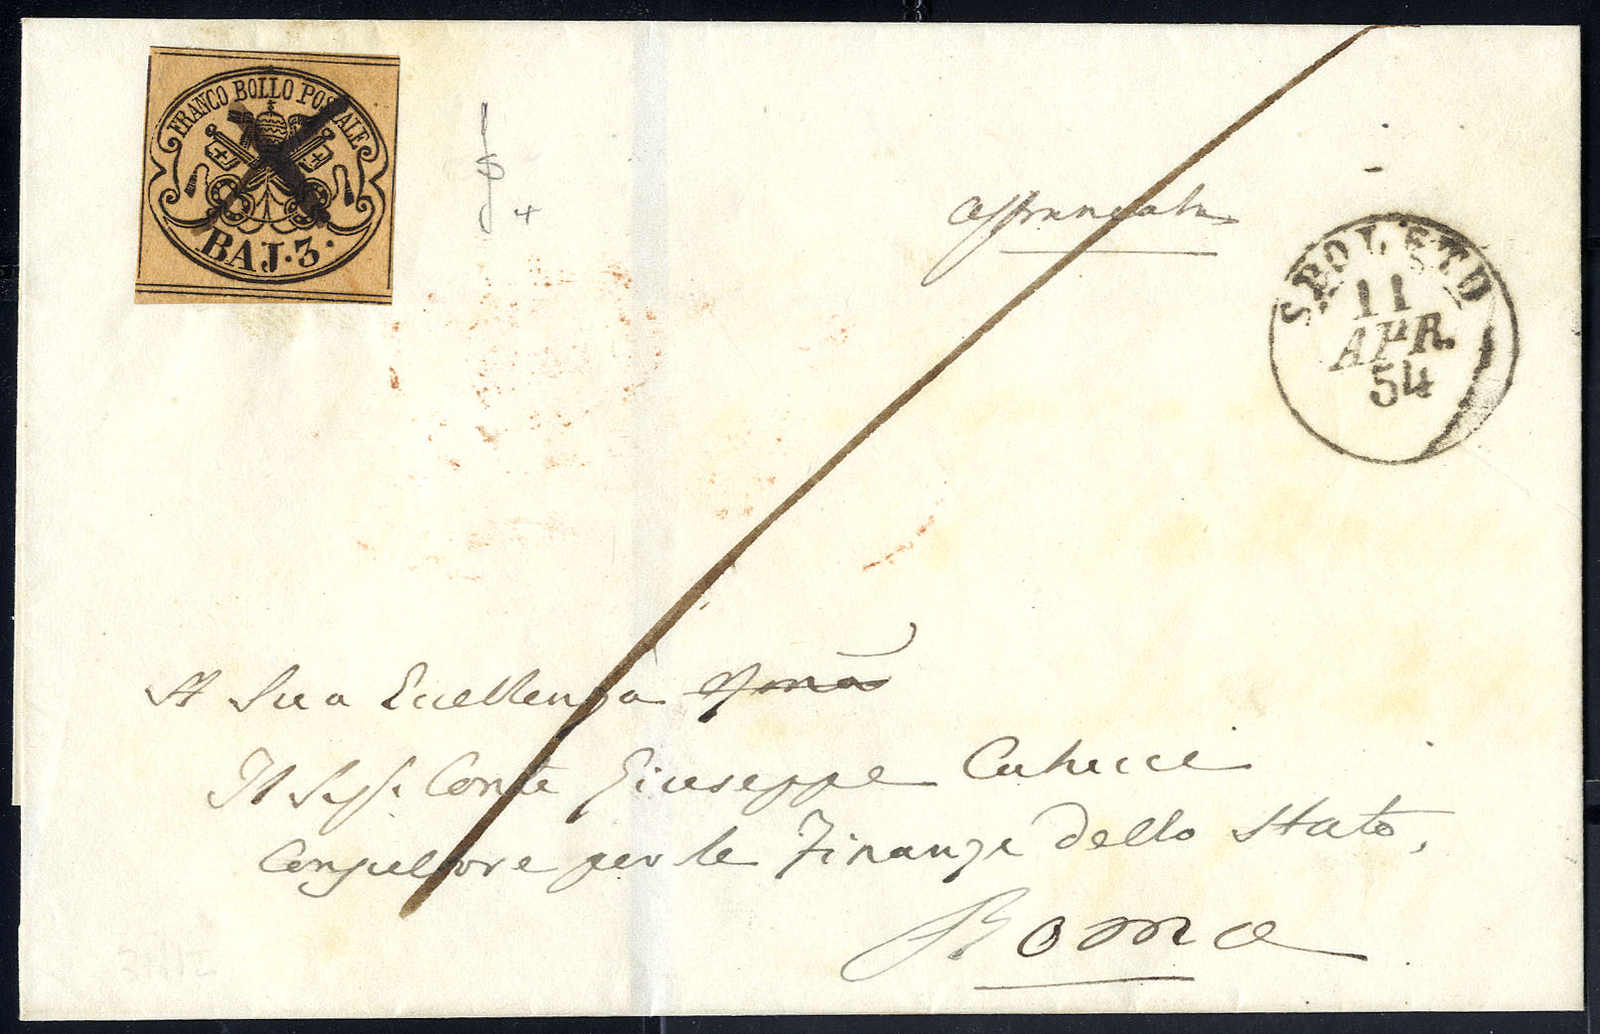 FRANCO BOLLO POSTALE
BAJ. 3.
affrancata
SPOLETO
11
APR.
54
A Sua Eccellenza
Il Sigr. Conte Giuseppe
Consultore per le Finanze dello Stato,
Roma